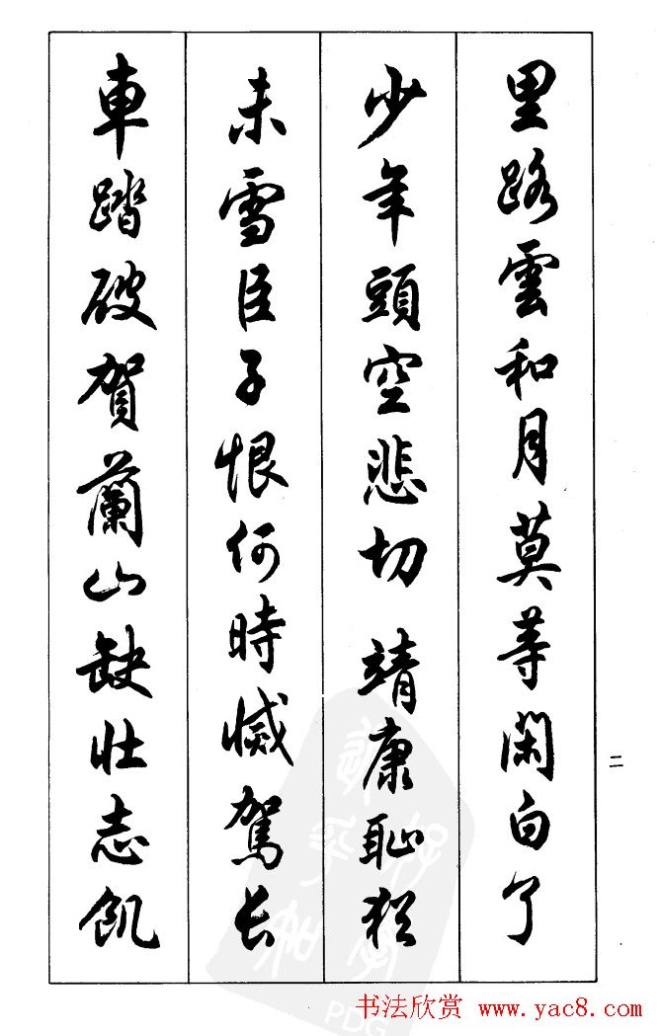 里路雲和月莫等閑白了
少年頭空悲切 靖康恥猶
未雪臣子恨何時憾駕长
車踏破賀蘭山缺壯志飢
二
PDG
书法欣赏 www.yac8.com